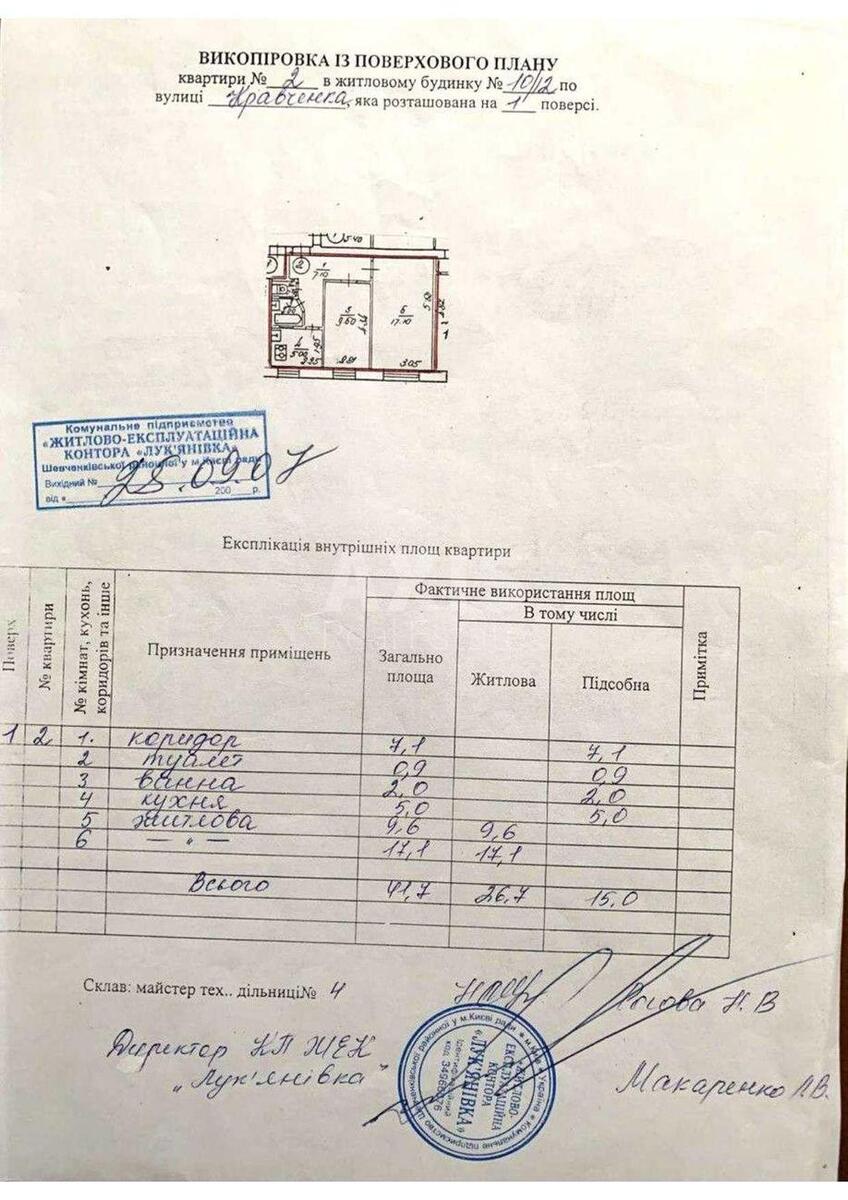 ВИКОПІРОВКА ІЗ ПОВЕРХОВОГО ПЛАНУ
квартири № 2 в житловому будинку № 10/12 по
вулиці Кравченка, яка розташована на 1 поверсі.
5.40
2
1
7.10
5
9.60
6
17.10
4
5.00
1.95
3.05
1
Комунальне підприємство
«ЖИТЛОВО-ЕКСПЛУАТАЦІЙНА
КОНТОРА «ЛУК'ЯНІВКА»
Шевченківської районної у м.Києві ради
Вихідний №
від « 200 р.
25.09.07
Експлікація внутрішніх площ квартири
Поверх
№ квартири
№ кімнат, кухонь, коридорів та інше
Призначення приміщень
Фактичне використання площ
Загально площа
В тому числі
Житлова
Підсобна
Примітка
1 2 1. коридор 7,1 7,1
2 туалет 0,9 0,9
3 ванна 2,0 2,0
4 кухня 5,0 5,0
5 житлова 9,6 9,6
6 — " — 17,1 17,1
Всього 41,7 26,7 15,0
Склав: майстер тех.. дільниці№ 4
Н. В
Директор КП ЖЕК
„Лук'янівка"
Макаренко Л.В.
Шевченківської районної у м.Києві ради * м.Київ * Україна * Комунальне підприємство
ЖИТЛОВО-
ЕКСПЛУАТАЦІЙНА
КОНТОРА
«ЛУК'ЯНІВКА»
Ідентифікаційний
код